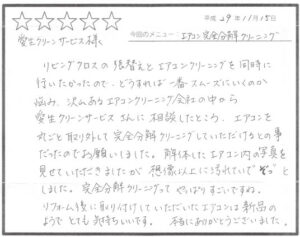 平成29年11月15日
愛生クリーンサービス様
今回のメニュー：エアコン完全分解クリーニング
リビングクロスの張替えとエアコンクリーニングを同時に
行いたかったので、どうすれば一番スムーズにいくのか
悩み、沢山あるエアコンクリーニング会社の中から
愛生クリーンサービスさんに相談したところ、エアコンを
丸ごと取り外して完全分解クリーニングしていただけるとの事
だったのでお願いしました。解体したエアコン内の写真を
見せていただきましたが想像以上に汚れていて"ぞっ"と
しました。完全分解クリーニングって やっぱりすごいですね。
リフォーム後に取り付けしていただいたエアコンは新品の
ようで とても気持ちいいです。本当にありがとうございました。